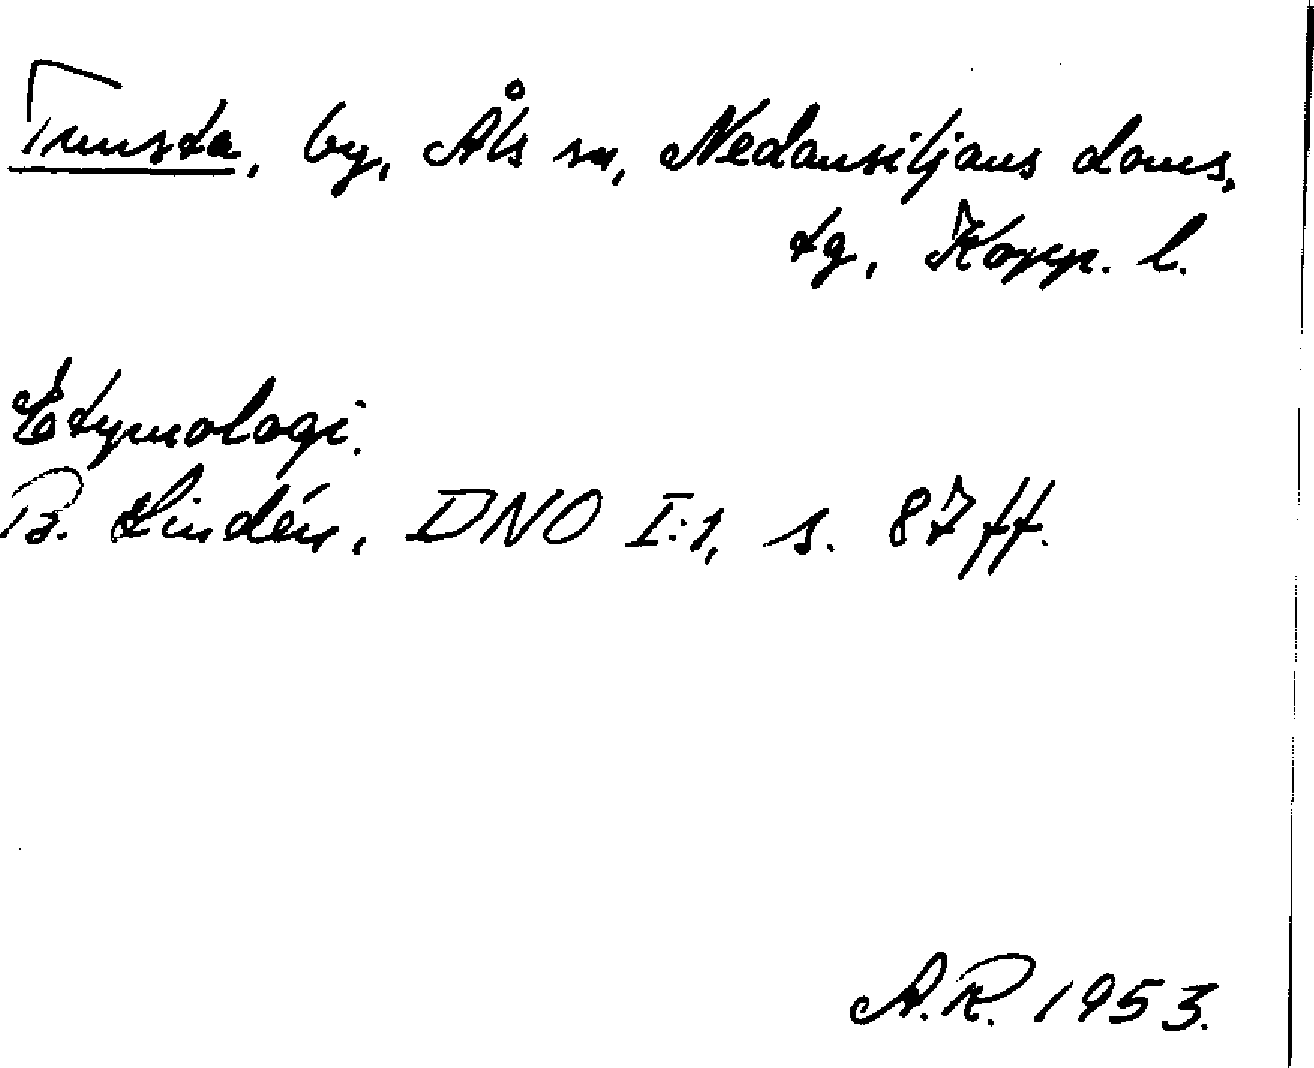 Tunsta, by, Åls sn, Nedansiljans doms.
tg, Kopp. l.
Etymologi.
B. Lindén, DNO I:1, s. 87 ff.
A.R. 1953.